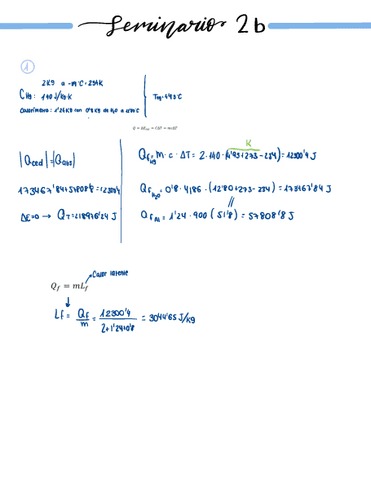 Seminario 2b
①
2Kg a -39°C = 234K
C Hg: 140 J/Kg·K
Calorímetro: 1'24Kg con 0'8Kg de H₂O a 12'80°C
Teq = 4'95°C
|Qced| = |Qabs|
173467'84+57808'8=12300'4
ΔE=0 → QT=218976'24 J
K
Qf Hg = m·c·ΔT = 2·140·(4'95+273-234) = 12300'4 J
Qf H₂O = 0'8·4186·(12'80+273-234) = 173467'84 J
Qf Al = 1'24·900(51'8) = 57808'8 J
Calor latente
Qf = mLf
Lf = Qf/m = 12300'4/(2+1'24+0'8) = 3044'65 J/Kg